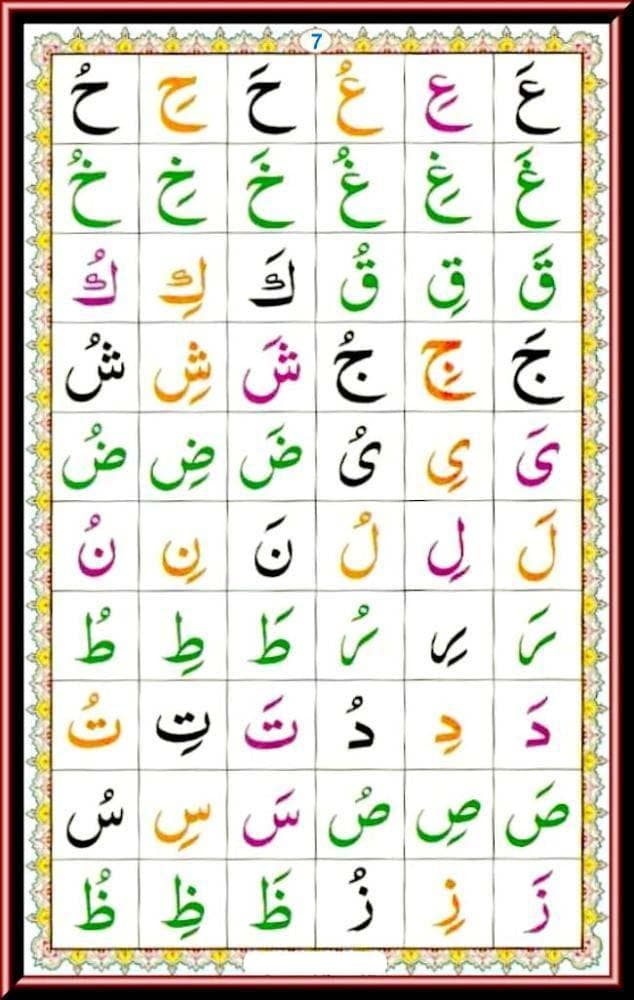 7
عَ عِ عُ حَ حِ حُ
غَ غِ غُ خَ خِ خُ
قَ قِ قُ كَ كِ كُ
جَ جِ جُ شَ شِ شُ
ىَ ىِ ىُ ضَ ضِ ضُ
لَ لِ لُ نَ نِ نُ
رَ رِ رُ طَ طِ طُ
دَ دِ دُ تَ تِ تُ
صَ صِ صُ سَ سِ سُ
زَ زِ زُ ظَ ظِ ظُ